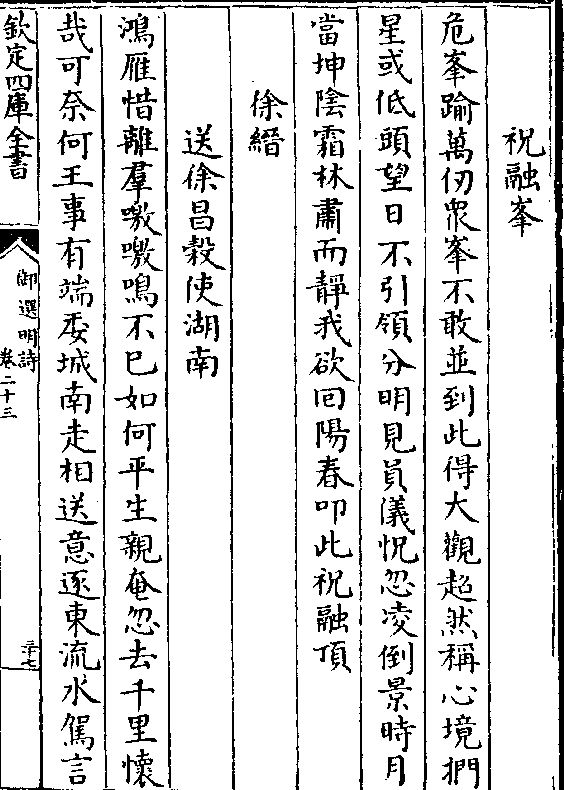 祝融峯
危峯踰萬仞衆峯不敢並到此得大觀超然稱心境捫
星或低頭望日不引領分明見員儀怳忽凌倒景時月
當坤陰霜林肅而靜我欲回陽春叩此祝融頂
徐縉
送徐昌穀使湖南
鴻雁惜離羣噭噭鳴不已如何平生親奄忽去千里懷
哉可奈何王事有端委城南走相送意逐東流水駕言
欽定四庫全書
御選明詩
卷二十三
三十七